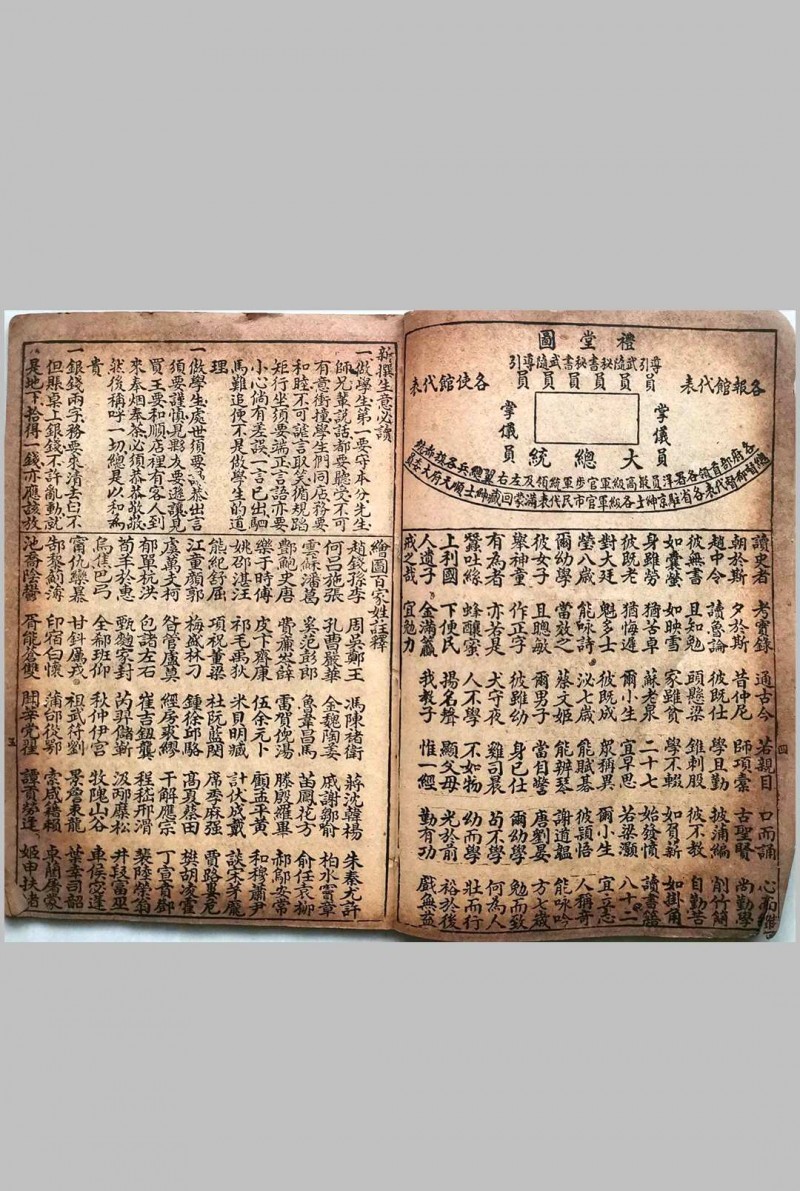 禮堂圖
導引武隨秘書秘書武隨導引
員員員員員員
各報館代表
各使館代表
掌儀員
掌儀員
大總統
讀史者 考實錄 通古今 若親目 口而誦 心而惟
朝於斯 夕於斯 昔仲尼 師項橐 古聖賢 尚勤學
趙中令 讀魯論 彼既仕 學且勤 披蒲編 削竹簡
彼無書 且知勉 頭懸梁 錐刺股 彼不教 自勤苦
如囊螢 如映雪 家雖貧 學不輟 如負薪 如掛角
身雖勞 猶苦卓 蘇老泉 二十七 始發憤 讀書籍
彼既老 猶悔遲 爾小生 宜早思 若梁灝 八十二
對大廷 魁多士 彼既成 眾稱異 爾小生 宜立志
瑩八歲 能咏詩 泌七歲 能賦碁 彼穎悟 人稱奇
爾幼學 當效之 蔡文姬 能辨琴 謝道韞 能咏吟
彼女子 且聰敏 爾男子 當自警 唐劉晏 方七歲
舉神童 作正字 彼雖幼 身已仕 爾幼學 勉而致
有為者 亦若是 犬守夜 雞司晨 苟不學 何為人
蠶吐絲 蜂釀蜜 人不學 不如物 幼而學 壯而行
上利國 下便民 揚名聲 顯父母 光於前 裕於後
人遺子 金滿籯 我教子 惟一經 勤有功 戲無益
戒之哉 宜勉力
四
新撰生意必讀
一做學生第一要守本分先生
師兄輩說話都要聽受不可
有意衝撞學生們同店務要
和睦不可謊言取笑循規蹈
矩行坐須要端正言語亦要
小心倘有差誤一言已出駟
馬難追便不是做學生的道
理
一做學生處世須要謙恭出言
須要謹慎見夥友要遜讓見
買主要和順店裡有客人到
來奉烟奉茶必須恭恭敬敬
然後稱呼一切總是以和為
貴
一銀錢兩字務要來清去白不
但賬桌上銀錢不許亂動就
是地下拾得一錢亦應該放
繪圖百家姓註釋
趙錢孫李 周吳鄭王 馮陳褚衛 蔣沈韓楊 朱秦尤許
何呂施張 孔曹嚴華 金魏陶姜 戚謝鄒喻 柏水竇章
雲蘇潘葛 奚范彭郎 魯韋昌馬 苗鳳花方 俞任袁柳
酆鮑史唐 費廉岑薛 雷賀倪湯 滕殷羅畢 郝鄔安常
樂于時傅 皮卞齊康 伍余元卜 顧孟平黃 和穆蕭尹
姚邵湛汪 祁毛禹狄 米貝明臧 計伏成戴 談宋茅龐
熊紀舒屈 項祝董梁 杜阮藍閔 席季麻強 賈路婁危
江童顏郭 梅盛林刁 鍾徐邱駱 高夏蔡田 樊胡凌霍
虞萬支柯 昝管盧莫 經房裘繆 干解應宗 丁宣賁鄧
郁單杭洪 包諸左石 崔吉鈕龔 程嵇邢滑 裴陸榮翁
荀羊於惠 甄麴家封 芮羿儲靳 汲邴糜松 井段富巫
烏焦巴弓 全郗班仰 秋仲伊宮 牧隗山谷 車侯宓蓬
甯仇欒暴 甘鈄厲戎 祖武符劉 景詹束龍 葉幸司韶
郜黎薊薄 印宿白懷 蒲邰從鄂 索咸籍賴 卓藺屠蒙
池喬陰鬱 胥能蒼雙 聞莘党翟 譚貢勞逄 姬申扶堵
五